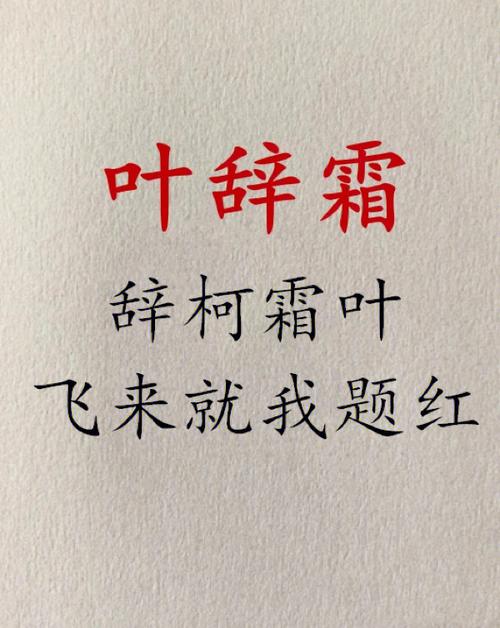 叶辞霜
辞柯霜叶
飞来就我题红